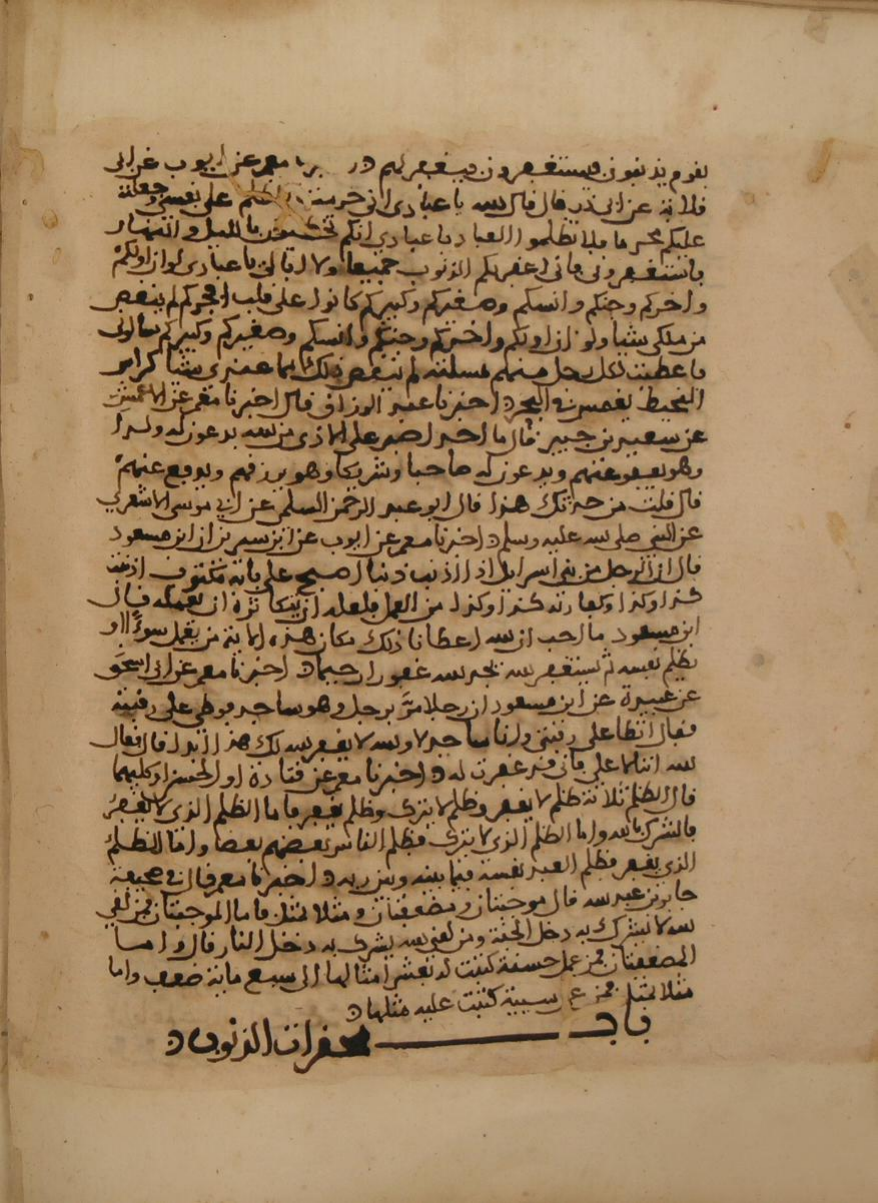 بقوم يذنبون فيستغفرون فيغفر لهم معمر عن ايوب عن ابي
قلابة عن ابي ذر قال قال الله يا عبادي اني حرمت الظلم على نفسي وجعلته
عليكم محرما فلا تظلموا العباد يا عبادي انكم تخطيون بالليل والنهار
فاستغفروني فاني اغفر لكم الذنوب جميعا ولا ابالي يا عبادي لو ان اولكم
واخركم وجنكم وانسكم وصغيركم وكبيركم كانوا على قلب افجركم لم ينقص
من ملكي شيا ولو ان اولكم واخركم وجنكم وانسكم وصغيركم وكبيركم سالوني
فاعطيت كل رجل منهم مسلته لم ينقص ذلك مما عندي شيا كراس
المخيط يغمس في البحر اخبرنا عبد الرزاق قال اخبرنا معمر عن الاعمش
عن سعيد بن جبير قال ما احد اصبر على الاذى من الله يدعون له ولدا
وهو يعفو عنهم ويدعون له صاحبا وشريكا وهو يرزقهم ويدفع عنهم
قال قلت من حدثك هذا قال ابو عبد الرحمن السلمي عن ابي موسى الاشعري
عن النبي صلى الله عليه وسلم اخبرنا معمر عن ايوب عن ابن سيرين ان ابن مسعود
قال ان الرجل من بني اسرايل اذا اذنب ذنبا اصبح على بابه مكتوب اذنبت
كذا وكذا وكفارته كذا وكذا من العمل فلعله ان يتكاثره ان يعمله قال
ابن مسعود ما احب ان الله اعطانا ذلك مكان هذه الاية من يعمل سوءا او
يظلم نفسه ثم يستغفر الله يجد الله غفورا رحيما اخبرنا معمر عن ابي اسحق
عن عبيدة عن ابن مسعود ان رجلا مر برجل وهو ساجد فوطي على رقبته
فقال اتطا على رقبتي وانا ساجد لا والله لا يغفر الله لك هذا ابدا قال فقال
الله اتتالا علي فاني قد غفرت له اخبرنا معمر عن قتادة او الحسن او كليهما
قال الظلم ثلاثة ظلم لا يغفر وظلم لا يترك وظلم يغفر فاما الظلم الذي لا يغفر
فالشرك بالله واما الظلم الذي لا يترك فظلم الناس بعضهم بعضا واما الظلم
الذي يغفر فظلم العبد نفسه فيما بينه وبين ربه اخبرنا معمر قال في صحيفة
جابر بن عبد الله قال موجبتان ومضعفتان ومثلا بمثل فاما الموجبتان فمن لقي
الله لا يشرك به دخل الجنة ومن لقي الله يشرك به دخل النار قال واما
المضعفتان فمن عمل حسنة كتبت له بعشر امثالها الى سبع ماية ضعف واما
مثلا بمثل فمن عمل سيية كتبت عليه مثلها
باب محقرات الذنوب